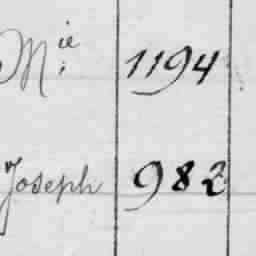 Mie 1194
Joseph 982